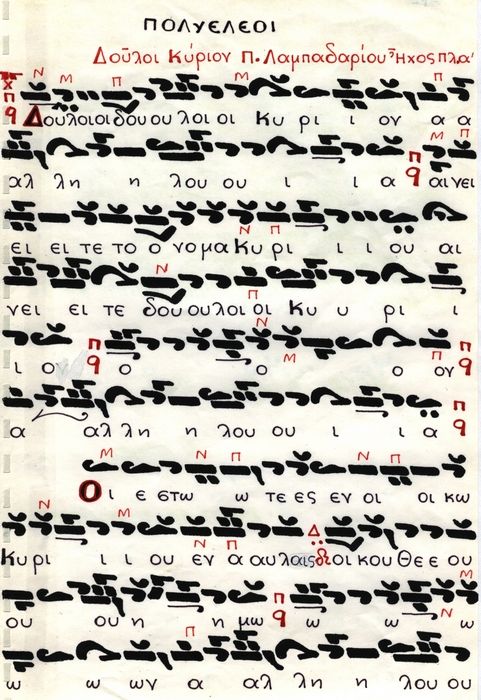 ΠΟΛΥΕΛΕΟΙ
Δοῦλοι Κύριον Π. Λαμπαδαρίου Ἦχος πλ.α'
Ν Μ Π Μ Ν
Δουλοιοιδουου λοι οι Κυ ρι ι ον α α
Μ Π
αλ λη η λου ου ι ι α Π αι νει
ει ει τε το ο νο μα Κυ ρι ι ι ου αι
Ν Π
νει ει τε δου ου λοι οι Κυ υ ρι ι
Ν Π
ι ον Π ο ο ο ον Π
α αλ λη η λου ου ι ι α Π
Μ Ν Π Ν Π
Ο ι ε στω ω τε ες εν οι οι κω
Ν Μ Δ
Κυ ρι ι ι ου εν α αυλαις οι κου Θε ε ου
Ν Π
ου ου η η μω Π ω ω ω
Π
ω ω ων α αλ λη η λου ου